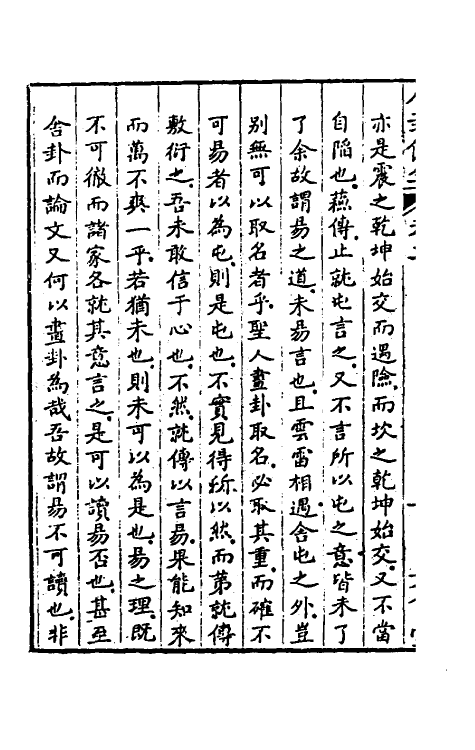 亦是震之乾坤始交而遇險而坎之乾坤始交又不當
自陷也蘓傳止就屯言之又不言所以屯之意皆未了
了余故謂易之道未易言也且雲雷相遇舍屯之外豈
別無可以取名者乎聖人畫卦取名必取其重而確不
可易者以為屯則是屯也不實見得所以然而第就傳
敷衍之吾未敢信于心也不然就傳以言易果能知來
而萬不爽一乎若猶未也則未可以為是也易之理既
不可徹而諸家各就其意言之是可以讀易否也甚至
舍卦而論文又何以畫卦為哉吾故謂易不可讀也非